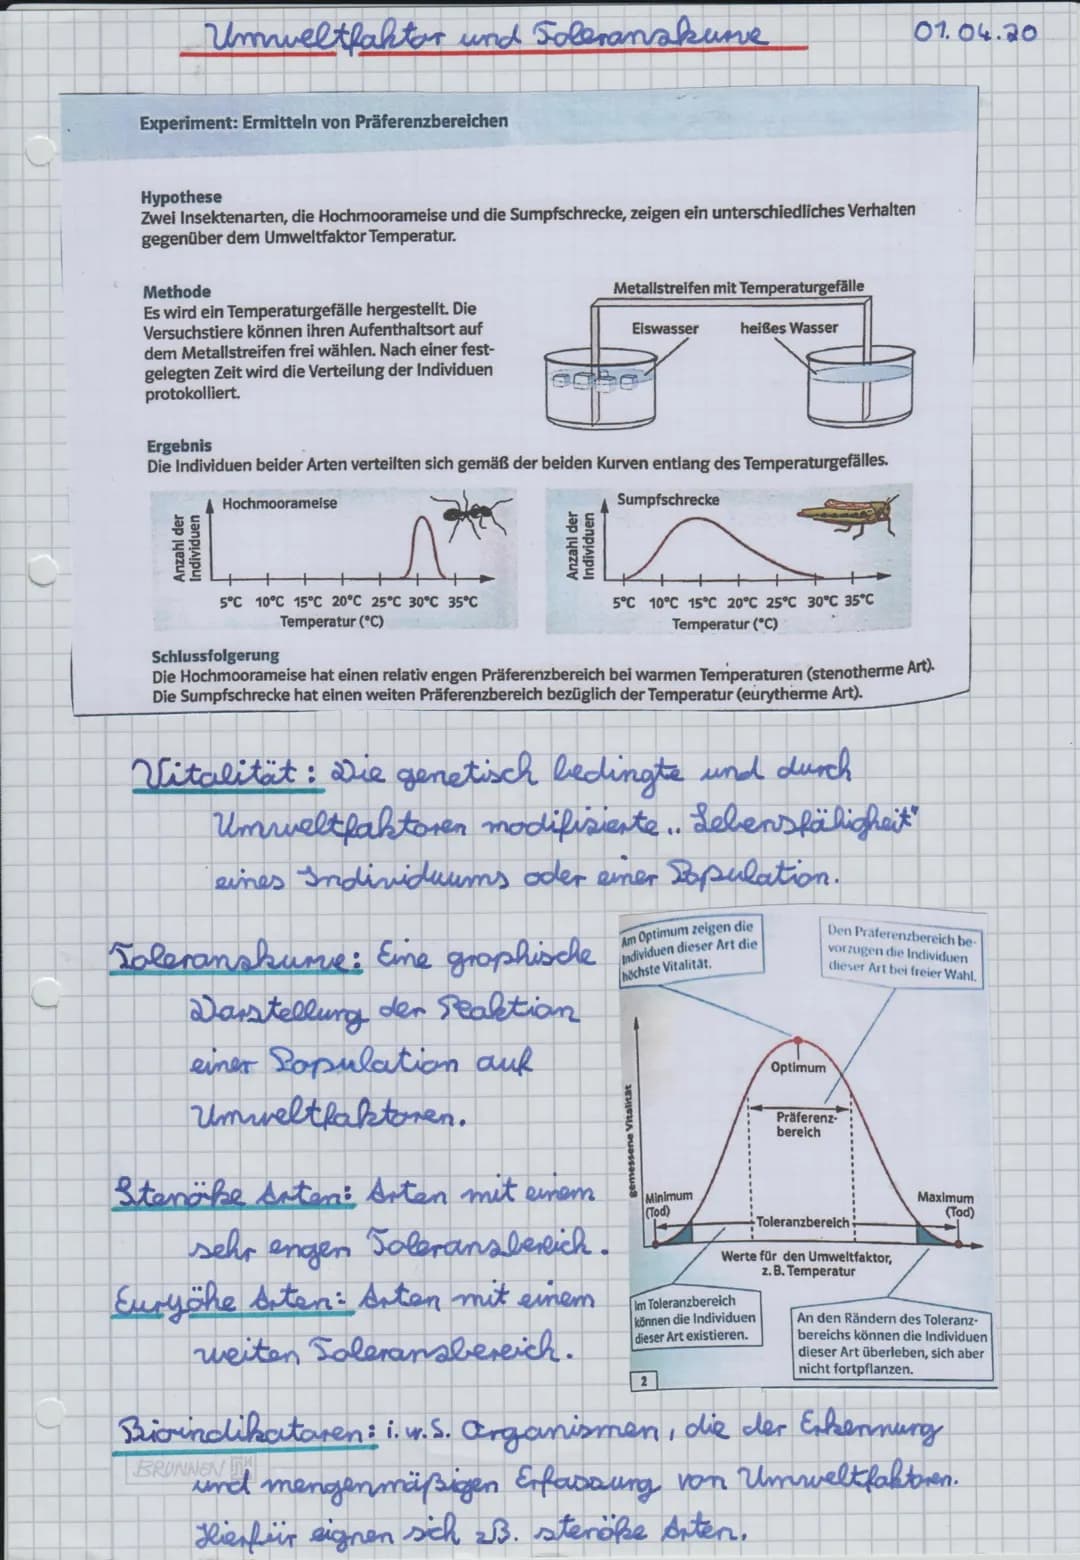 Umweltfaktor und Toleranzkurve 01.04.20
Experiment: Ermitteln von Präferenzbereichen
Hypothese
Zwei Insektenarten, die Hochmoorameise und die Sumpfschrecke, zeigen ein unterschiedliches Verhalten
gegenüber dem Umweltfaktor Temperatur.
Methode
Es wird ein Temperaturgefälle hergestellt. Die
Versuchstiere können ihren Aufenthaltsort auf
dem Metallstreifen frei wählen. Nach einer fest-
gelegten Zeit wird die Verteilung der Individuen
protokolliert.
Metallstreifen mit Temperaturgefälle
Eiswasser heißes Wasser
Ergebnis
Die Individuen beider Arten verteilten sich gemäß der beiden Kurven entlang des Temperaturgefälles.
Hochmoorameise
Anzahl der
Individuen
5°C 10°C 15°C 20°C 25°C 30°C 35°C
Temperatur (°C)
Sumpfschrecke
Anzahl der
Individuen
5°C 10°C 15°C 20°C 25°C 30°C 35°C
Temperatur (°C)
Schlussfolgerung
Die Hochmoorameise hat einen relativ engen Präferenzbereich bei warmen Temperaturen (stenotherme Art).
Die Sumpfschrecke hat einen weiten Präferenzbereich bezüglich der Temperatur (eurytherme Art).
Vitalität: Die genetisch bedingte und durch
Umweltfaktoren modifizierte „Lebensfähigkeit"
eines Individuums oder einer Population.
Toleranzkurve: Eine graphische
Darstellung der Reaktion
einer Population auf
Umweltfaktoren.
Stenöke Arten: Arten mit einem
sehr engen Toleranzbereich.
Euryöke Arten: Arten mit einem
weiten Toleranzbereich.
Am Optimum zeigen die
Individuen dieser Art die
höchste Vitalität.
Den Präferenzbereich be-
vorzugen die Individuen
dieser Art bei freier Wahl.
gemessene Vitalität
Optimum
Präferenz-
bereich
Minimum
(Tod)
Maximum
(Tod)
Toleranzbereich
Werte für den Umweltfaktor,
z. B. Temperatur
Im Toleranzbereich
können die Individuen
dieser Art existieren.
An den Rändern des Toleranz-
bereichs können die Individuen
dieser Art überleben, sich aber
nicht fortpflanzen.
2
Bioindikatoren: i.w.S. Organismen, die der Erkennung
BRUNNEN
und mengenmäßigen Erfassung von Umweltfaktoren.
Hierfür eignen sich z.B. stenöke Arten.